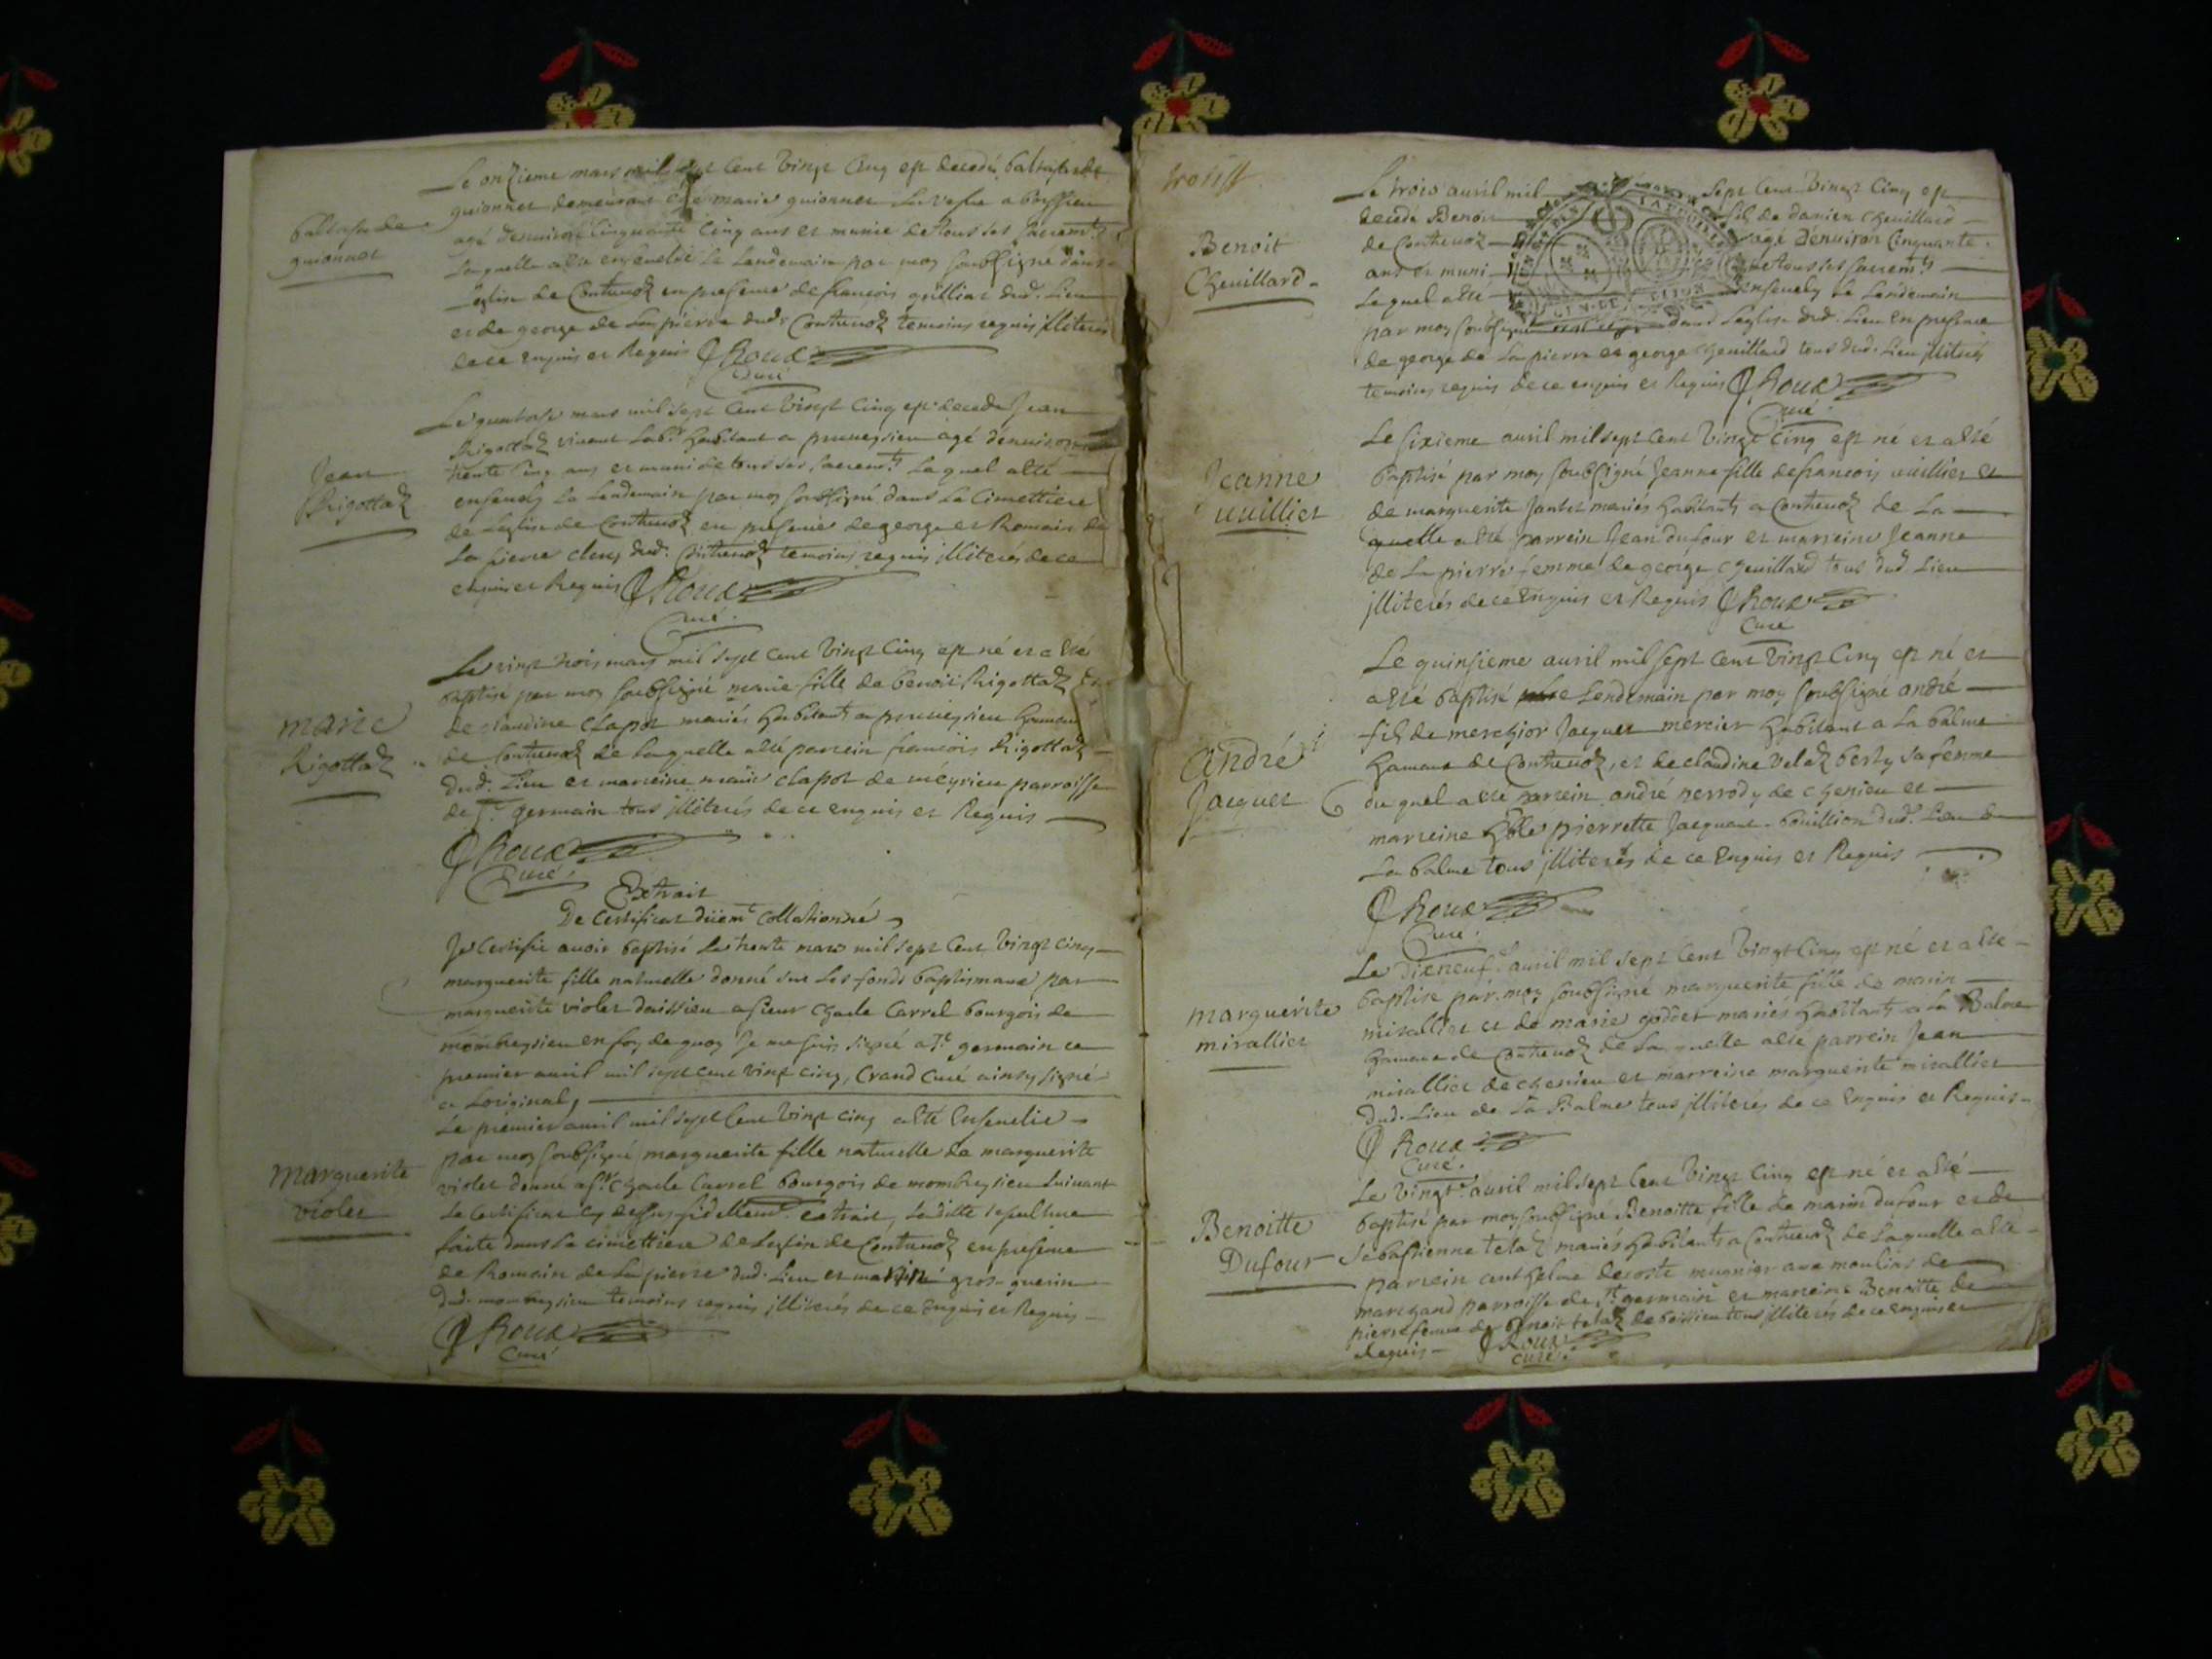 Baltasarde
guionnet
Le onzieme mars mil sept cent vingt cinq est decedé baltasarde
guionnet demeurant marie guionnet sa
agé denviron Cinquante Cinq ans et munie de tous ses sacremts
Laquelle a esté ensevelie Le Lendemain par moy soubsigné dans
Leglise de Contrevoz en presence de francois dud. Lieu
et de george de La pierre dud. Contrevoz temoins requis jlliterés
de ce Enquis et Requis Roux
Curé
Jean
Rigottaz
Le quatorse mars mil sept Cent vingt Cinq est decedé Jean
Rigottaz vivant Labr. habitant a prumeysieu agé denviron
trente Cinq ans et muni de tous ses sacremts Lequel a esté
ensevely Le Lendemain par moy soubsigné dans Le Cimettiere
de Leglise de Contrevoz en presence de george et Romain de
La pierre dud. Contrevoz temoins requis jlliterés de ce
enquis et Requis Roux
Curé.
marie
Rigottaz
Le vingt trois mars mil sept cent vingt Cinq est né et a esté
baptisé par moy soubsigné marie fille de benoit Rigottaz et
de claudine Clapot mariés habitants a prumeysieu hameau
de Contrevoz de Laquelle a esté parrein francois Rigottaz
dud. Lieu et marreine marie clapot de meyrieu parroisse
de St. germain tous jlliterés de ce enquis et Requis
Roux
Curé.
Extrait
De Certificat düemt Collationné
Je Certifie avoir baptisé Le trente mars mil sept Cent vingt cinq
marguerite fille naturelle donné sur Les fonds baptismaux par
marguerite violet a sieur Charle Carrel bourgois de
mombreysieu en foy de quoy Je me suis signé a St germain ce
premier avril mil sept cent vingt cinq, Crand Curé ainsy signé
a Loriginal,
marguerite
violet
Le premier avril mil sept Cent vingt cinq a esté Ensevelie
par moy soubsigné marguerite fille naturelle de marguerite
violet donné a sr. Charle Carrel bourgois de mombreysieu suivant
Le Certificat cy dessus fidellemt extrait, Laditte sepulture
faite dans Le cimettiere de Leglise de Contrevoz en presence
de Romain de La pierre dud. Lieu et gros-guerin
dud. mombreysieu temoins requis jlliterés de ce Enquis et Requis
Roux
Curé
Benoit
Chevillard
Le trois avril mil sept Cent vingt Cinq est
decedé Benoit fils de danien Chevillard
de Contrevoz agé Denviron Cinquante
ans et muni de tous ses sacremts
Lequel a esté Ensevely Le Lendemain
par moy soubsigné dans Leglise dud. Lieu En presence
de george de La pierre et george Chevillard tous dud. Lieu jlliterés
temoins requis de ce enquis et Requis Roux
Curé.
Jeanne
vuillier
Le sixieme avril mil sept cent vingt cinq est né et a esté
baptisé par moy soubsigné Jeanne fille de francois vuillier et
de marguerite Jantet mariés habitants a Contrevoz de La
quelle a esté parrein Jean dufour et marreine Jeanne
de La pierre femme de george Chevillard tous dud. Lieu
jlliterés de ce Enquis et Requis Roux
Curé
André
Jacquet
Le quinsieme avril mil sept Cent vingt Cinq est né et
a esté baptisé le Lendemain par moy soubsigné andré
fils de merchior Jacquet mercier habitant a La balme
hameau de Contrevoz, et de claudine sa femme
du quel a esté parrein andré perrody de Chenieu et
marreine pierrette dud. Lieu de
La balme tous jlliterés de ce Enquis et Requis
Roux
Curé.
marguerite
mirallier
Le Dixneuf avril mil sept Cent vingt Cinq est né et a esté
baptisé par moy soubsigné marguerite fille de marin
mirallier et de marie goddet mariés habitants a La Balme
hameau de Contrevoz de Laquelle a esté parrein Jean
mirallier de chenieu et marreine marguerite mirallier
dud. Lieu de La Balme tous jlliterés de ce Enquis et Requis
Roux
Curé.
Benoitte
Dufour
Le vingt. avril mil sept Cent vingt cinq est né et a esté
baptisé par moy soubsigné Benoitte fille de marin dufour et de
Sebastienne tetaz mariés habitants a Contrevoz de Laquelle a esté
parrein anthelme decoste mugnier aux moulins de
marchand parroisse de St. germain et marreine Benoitte de
pierre femme de benoit tetaz de boissieu tous jlliterés de ce enquis et
Requis Roux
Curé.